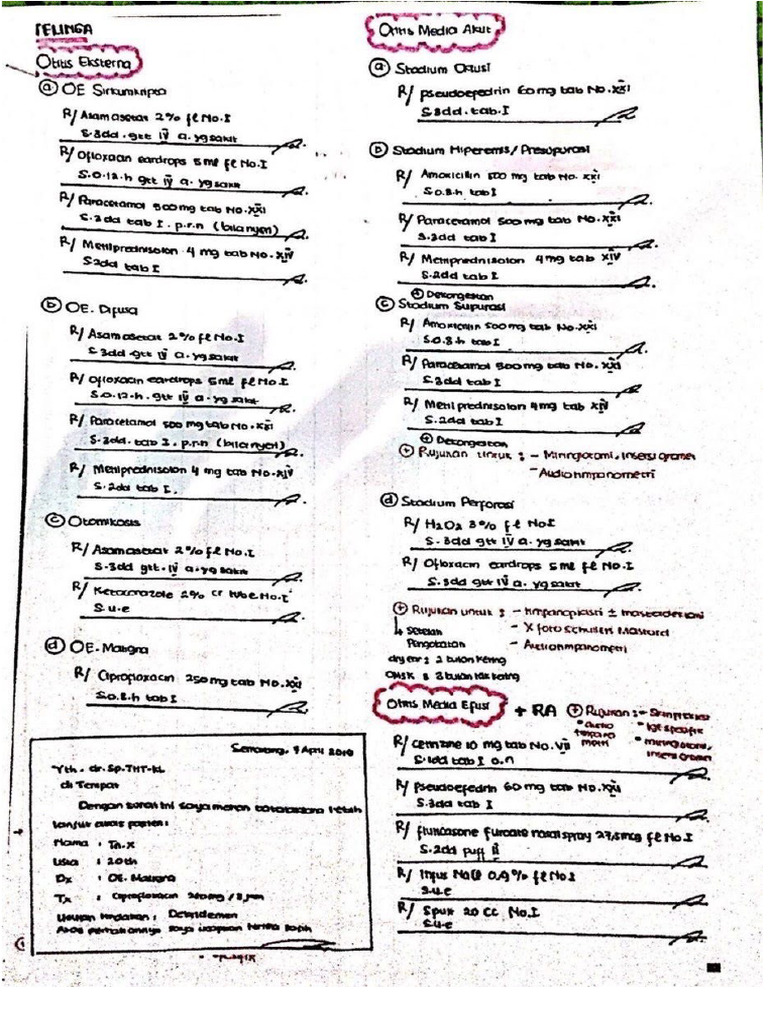 TELINGA
Otitis Eksterna
a OE Sirkumkripta
R/ Asam asetat 2% fl No.I
S.3dd.gtt IV a.yg sakit
R/ Ofloxacin eardrops 5 ml fl No.I
S.o.12.h gtt IV a.yg sakit
R/ Paracetamol 500 mg tab No.XXI
S.3dd tab I. p.r.n (bila nyeri)
R/ Metilprednisolon 4 mg tab No.XIV
S.2dd tab I
b OE. Difusa
R/ Asam asetat 2% fl No.I
S.3dd.gtt IV a.yg sakit
R/ Ofloxacin eardrops 5 ml fl No.I
S.o.12.h.gtt IV a.yg sakit
R/ Paracetamol 500 mg tab No.XXI
S.3dd.tab I.p.r.n (bila nyeri)
R/ Metilprednisolon 4 mg tab No.XIV
S.2dd tab I.
c Otomikosis
R/ Asam asetat 2% fl No.I
S.3dd gtt.IV a.yg sakit
R/ Ketoconazole 2% cr tube No.I
S.u.e
d OE. Maligna
R/ Ciprofloxacin 250 mg tab No.XXI
S.o.8.h tab I
Semarang, 9 April 2018
Yth. dr.Sp.THT-KL
di Tempat
Dengan surat ini saya mohon tatalaksana lebih
lanjut atas pasien:
Nama : Tn.X
Usia : 20th
Dx : OE. Maligna
Tx : Ciprofloxacin
Usulan tindakan : Debridemen
Atas perhatiannya saya ucapkan terima kasih
Otitis Media Akut
a Stadium Oklusi
R/ pseudoefedrin 60 mg tab No.XXI
S.3dd.tab.I
b Stadium Hiperemis/Presupurasi
R/ Amoxicillin 500 mg tab No.XXI
S.o.8.h tab I
R/ Paracetamol 500 mg tab No.XXI
S.3dd tab I
R/ Metilprednisolon 4 mg tab XIV
S.2dd tab I
+ Dekongestan
c Stadium Supurasi
R/ Amoxicillin 500 mg tab No.XXI
S.o.8.h tab I
R/ Paracetamol 500 mg tab No.XXI
S.3dd tab I
R/ Metilprednisolon 4 mg tab XIV
S.2dd tab I
+ Dekongestan
+ Rujukan untuk : - Miringotomi, insersi gromet
- Audiotimpanometri
d Stadium Perforasi
R/ H2O2 3% fl No I
S.3dd gtt IV a.yg sakit
R/ Ofloxacin eardrops 5 ml fl No.I
S.3dd gtt IV a.yg sakit
+ Rujukan untuk : - timpanoplasti ± mastoidektomi
↳ Setelah - X foto Schuller Mastoid
Pengobatan - Audiotimpanometri
dry ear : 2 bulan kering
OMSK : 3 bulan tak kering
Otitis Media Efusi + RA + Rujukan : - Skin prick test
• audio timpano metri
• IgE spesifik
• miringotomi, insersi gromet
R/ Cetirizine 10 mg tab No.VII
S.1dd tab I o.n
R/ Pseudoefedrin 60 mg tab No.XXI
S.3dd tab I
R/ Fluticasone Furoate nasal spray 27,5mcg fl No.I
S.2dd puff II
R/ Infus NaCl 0.9% fl No I
S.u.e
R/ Spuit 20 cc No.I
S.u.e